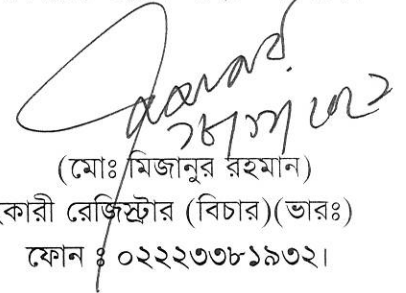 (মোঃ মিজানুর রহমান)
কারী রেজিস্ট্রার (বিচার)(ভারঃ)
ফোন ঃ ০২২২৩৩৮১৯৩২।